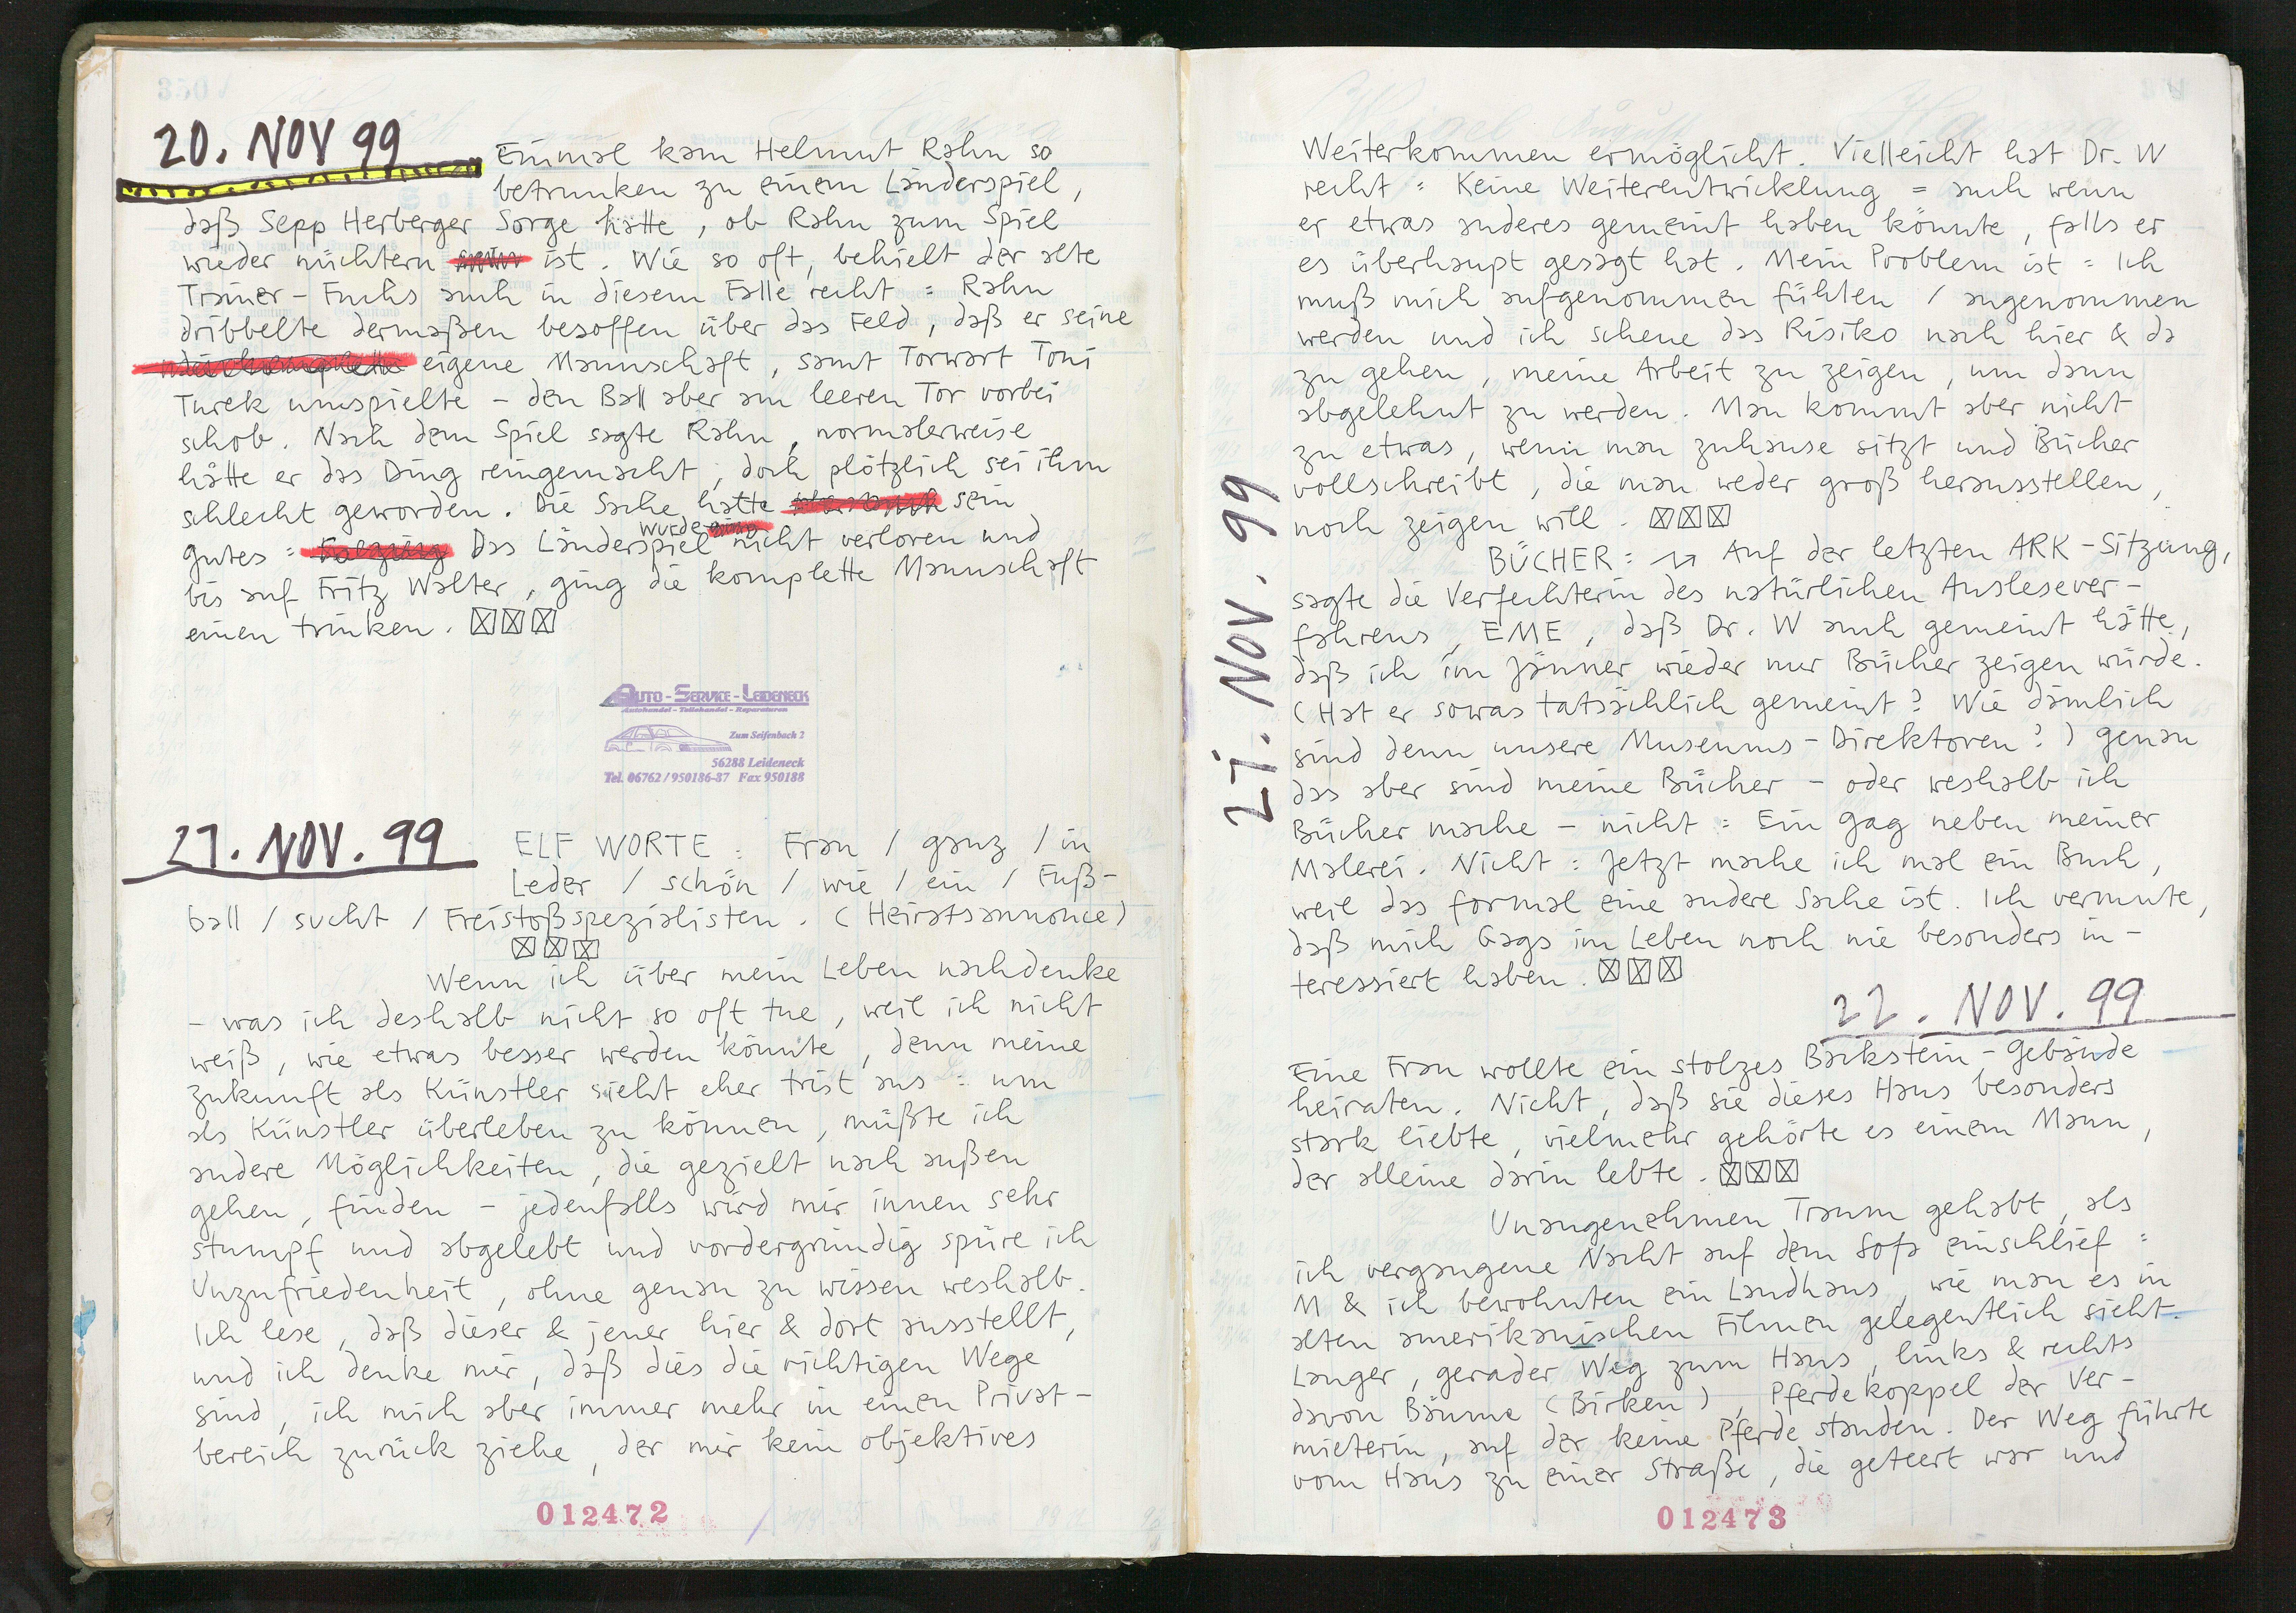 20. NOV 99
Einmal kam Helmut Rahn so
betrunken zu einem Länderspiel,
daß Sepp Herberger Sorge hatte, ob Rahn zum Spiel
wieder nüchtern ist. Wie so oft, behielt der alte
Trainer-Fuchs auch in diesem Falle recht: Rahn
dribbelte dermaßen besoffen über das Feld, daß er seine
eigene Mannschaft, samt Torwart Toni
Turek umspielte – den Ball aber am leeren Tor vorbei
schob. Nach dem Spiel sagte Rahn, normalerweise
hätte er das Ding reingemacht, doch plötzlich sei ihm
schlecht geworden. Die Sache hatte sein
Gutes: Das Länderspiel wurde nicht verloren und
bis auf Fritz Walter, ging die komplette Mannschaft
einen trinken. ☒☒☒
AUTO-SERVICE-LEIDENECK
Autohandel - Teilehandel - Reparaturen
Zum Seifenbach 2
56288 Leideneck
Tel. 06762 / 950186-87 Fax 950188
21. NOV. 99
ELF WORTE: Frau / ganz / in
Leder / schön / wie / ein / Fuß-
ball / sucht / Freistoßspezialisten. (Heiratsannonce)
☒☒☒
Wenn ich über mein Leben nachdenke
– was ich deshalb nicht so oft tue, weil ich nicht
weiß, wie etwas besser werden könnte, denn meine
Zukunft als Künstler sieht eher trist aus: um
als Künstler überleben zu können, müßte ich
andere Möglichkeiten, die gezielt nach außen
gehen, finden – jedenfalls wird mir innen sehr
stumpf und abgelebt und vordergründig spüre ich
Unzufriedenheit, ohne genau zu wissen weshalb.
Ich lese, daß dieser & jener hier & dort ausstellt,
und ich denke mir, daß dies die richtigen Wege
sind, ich mich aber immer mehr in einen Privat-
bereich zurück ziehe, der mir kein objektives
012472
21. NOV. 99
Weiterkommen ermöglicht. Vielleicht hat Dr. W
recht: Keine Weiterentwicklung = auch wenn
er etwas anderes gemeint haben könnte, falls er
es überhaupt gesagt hat. Mein Problem ist: Ich
muß mich aufgenommen fühlen / angenommen
werden und ich scheue das Risiko nach hier & da
zu gehen, meine Arbeit zu zeigen, um dann
abgelehnt zu werden. Man kommt aber nicht
zu etwas, wenn man zuhause sitzt und Bücher
vollschreibt, die man weder groß herausstellen,
noch zeigen will. ☒☒☒
BÜCHER: Auf der letzten ARK-Sitzung,
sagte die Verfechterin des natürlichen Auslesever-
fahrens, EME, daß Dr. W auch gemeint hätte,
daß ich im Jänner wieder nur Bücher zeigen würde.
(Hat er sowas tatsächlich gemeint? Wie dämlich
sind denn unsere Museums-Direktoren?) genau
das aber sind meine Bücher – oder weshalb ich
Bücher mache – nicht: Ein Gag neben meiner
Malerei. Nicht: Jetzt mache ich mal ein Buch,
weil das formal eine andere Sache ist. Ich vermute,
daß mich Gags im Leben noch nie besonders in-
teressiert haben. ☒☒☒
22. NOV. 99
Eine Frau wollte ein stolzes Backstein-Gebäude
heiraten. Nicht, daß sie dieses Haus besonders
stark liebte, vielmehr gehörte es einem Mann,
der alleine darin lebte. ☒☒☒
Unangenehmen Traum gehabt, als
ich vergangene Nacht auf dem Sofa einschlief:
M & ich bewohnten ein Landhaus, wie man es in
alten amerikanischen Filmen gelegentlich sieht.
Langer, gerader Weg zum Haus, links & rechts
davon Bäume (Birken), Pferdekoppel der Ver-
mieterin, auf der keine Pferde standen. Der Weg führte
vom Haus zu einer Straße, die geteert war und
012473